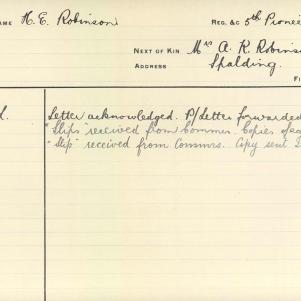 NAME H. E. Robinson REG. &C 5th Pionee
NEXT OF KIN Mrs A. R. Robins
ADDRESS Spalding.
Letter acknowledged. P/Letter forwarded
"Slips" received from Commrs. Copies of
"Slip" received from Commrs. Copy sent